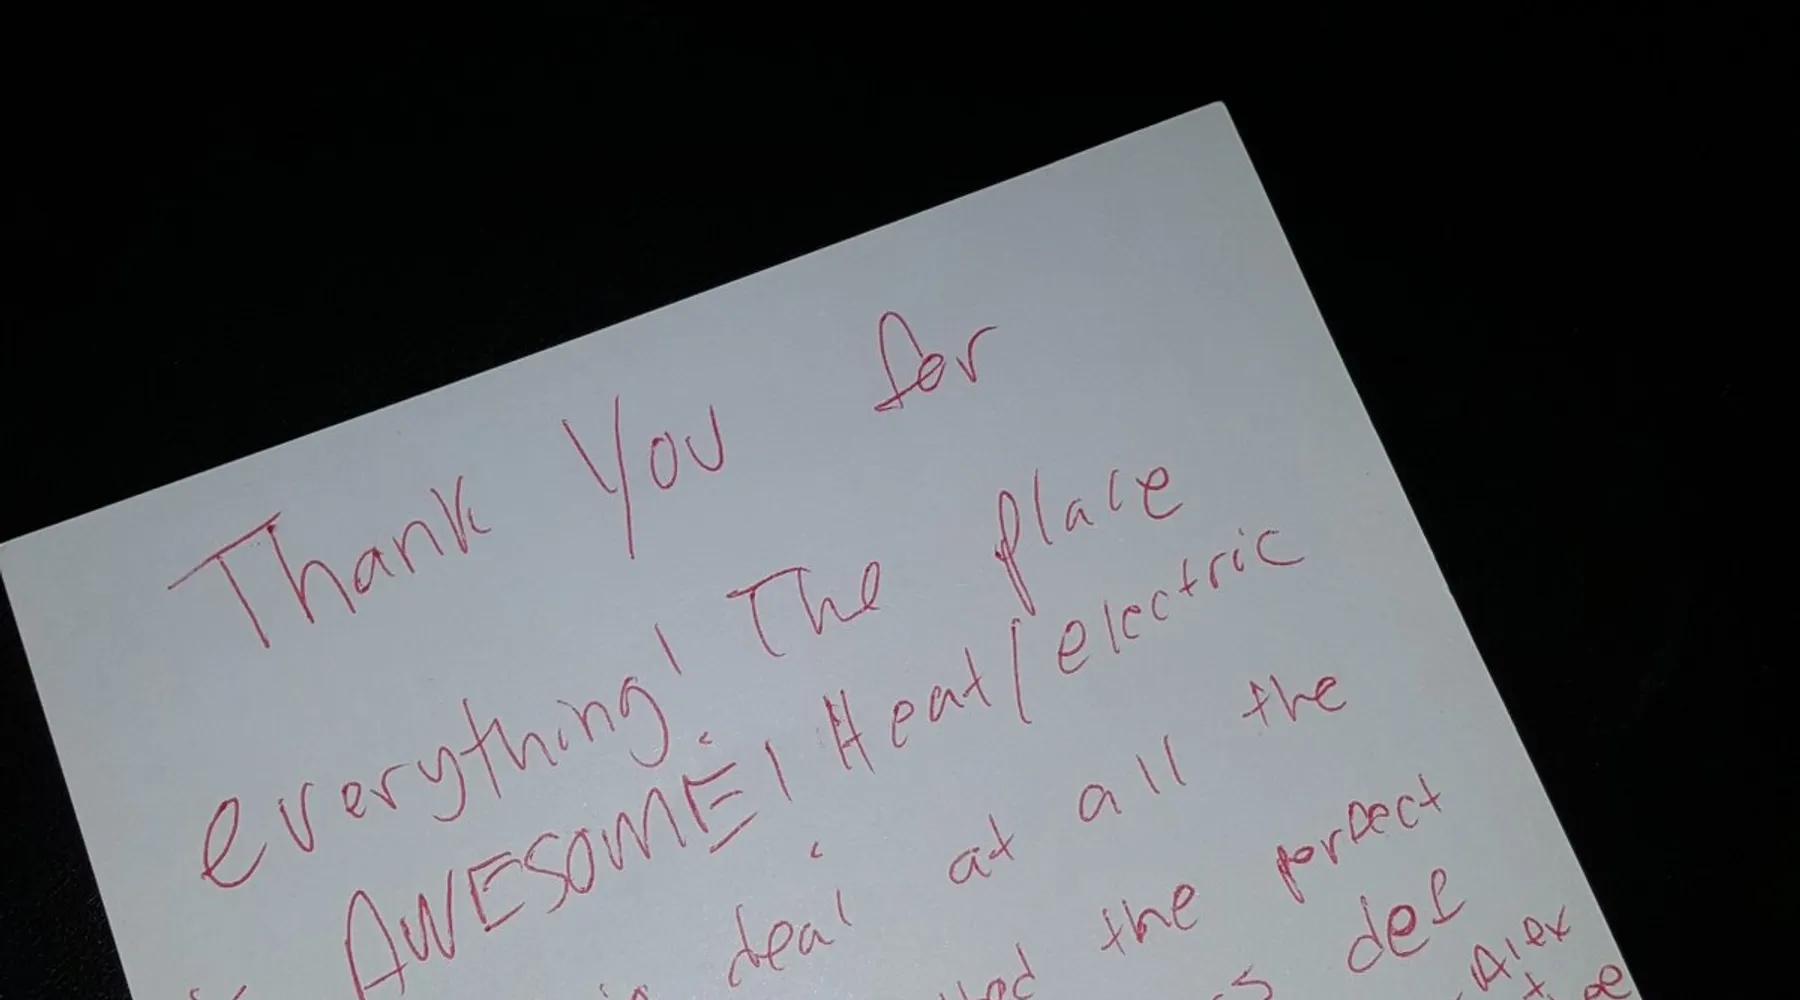 Thank You for
everything! The place
AWESOME! Heat/electric
deal at all the
the perfect
def
Alex